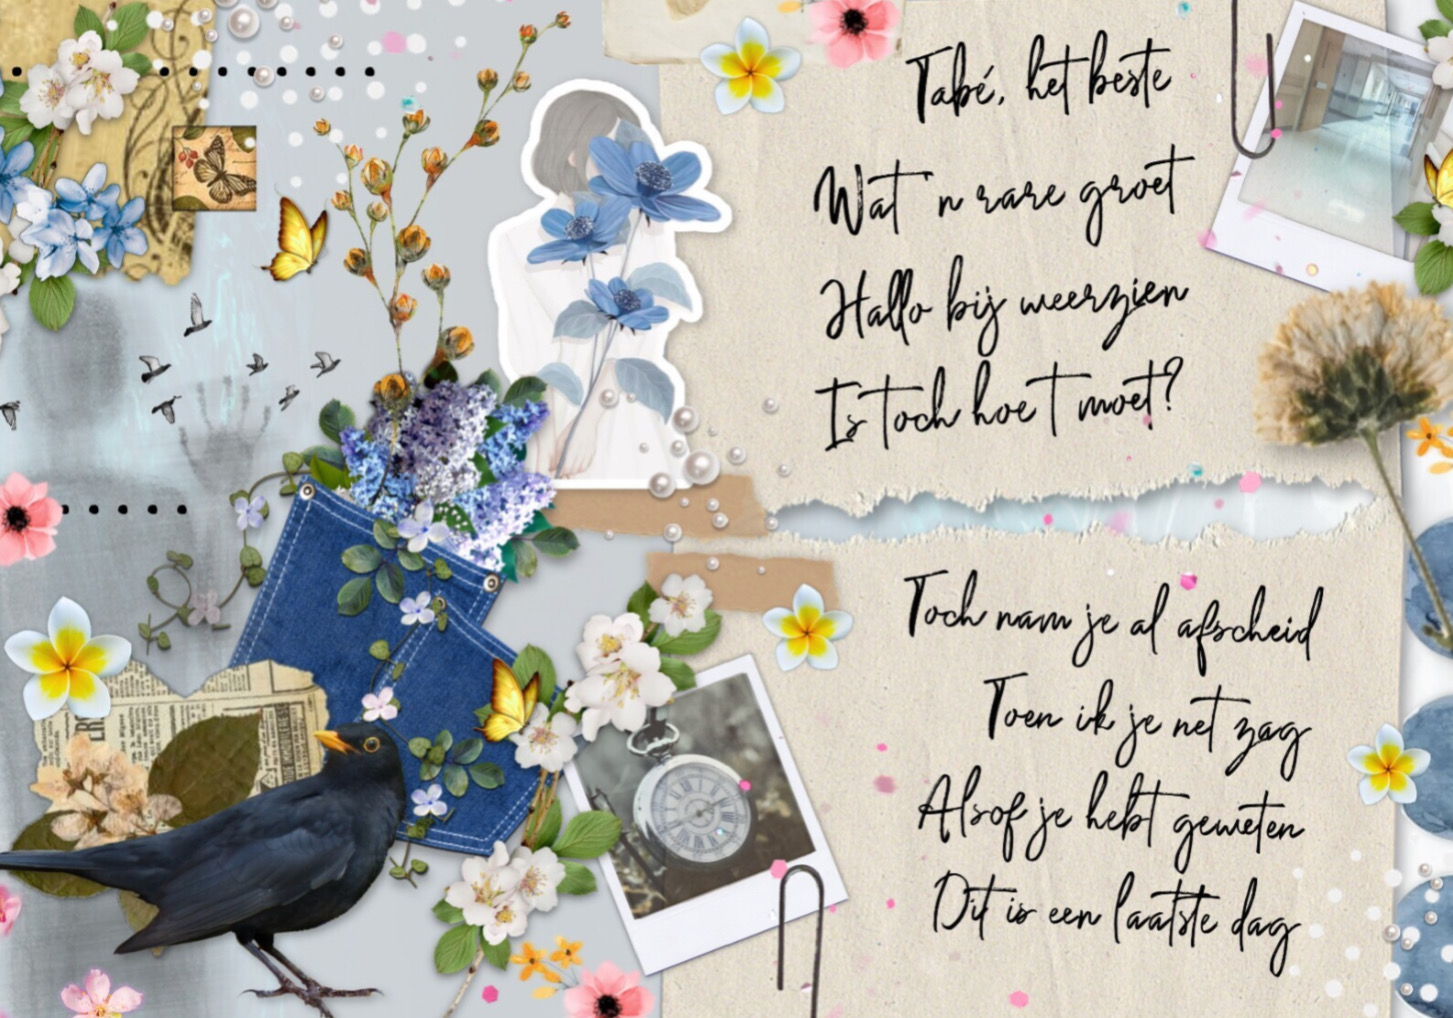 Tabé, het beste
Wat 'n rare groet
Hallo bij weerzien
Is toch hoe 't moet?
Toch nam je al afscheid
Toen ik je net zag
Alsof je hebt geweten
Dit is een laatste dag